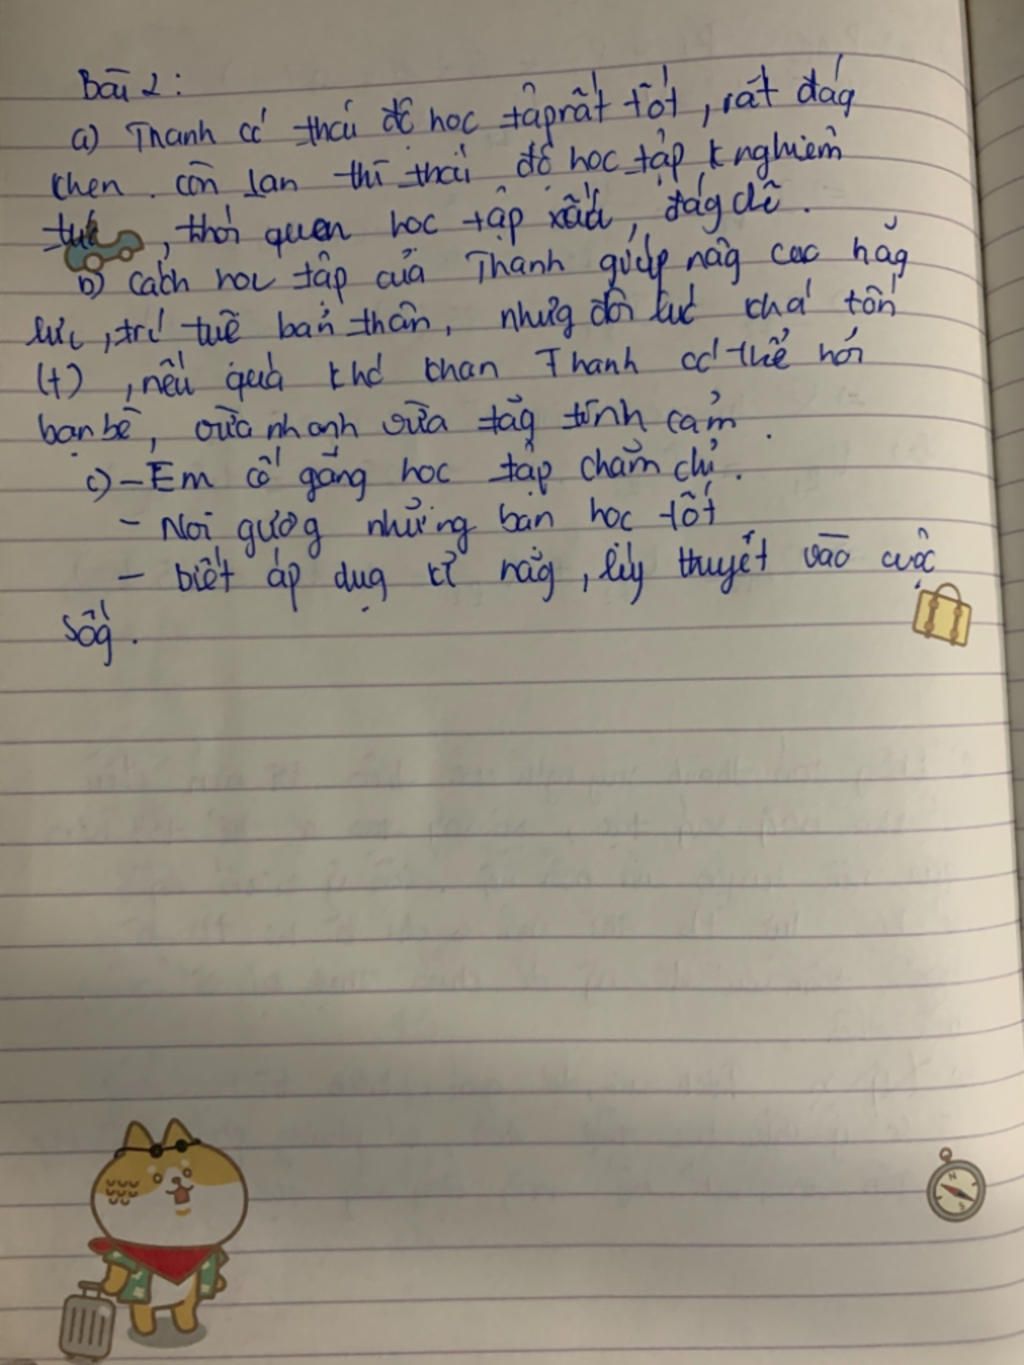 Bài 2:
a) Thanh có thái độ học tập rất tốt, rất đág
khen. Còn Lan thì thái độ học tập k nghiêm
túc, thói quen học tập xấu, đág chê.
b) Cách học tập của Thanh giúp nâg cao năg
lực, trí tuệ bản thân, nhưg đôi lúc khá tốn
(t), nếu quá khó khăn Thanh có thể hỏi
bạn bè, vừa nhanh vừa tăg tình cảm.
c) - Em cố gắng học tập chăm chỉ.
- Noi gươg những bạn học tốt
- biết áp dụg kĩ năg, lý thuyết vào cuộc
sốg.